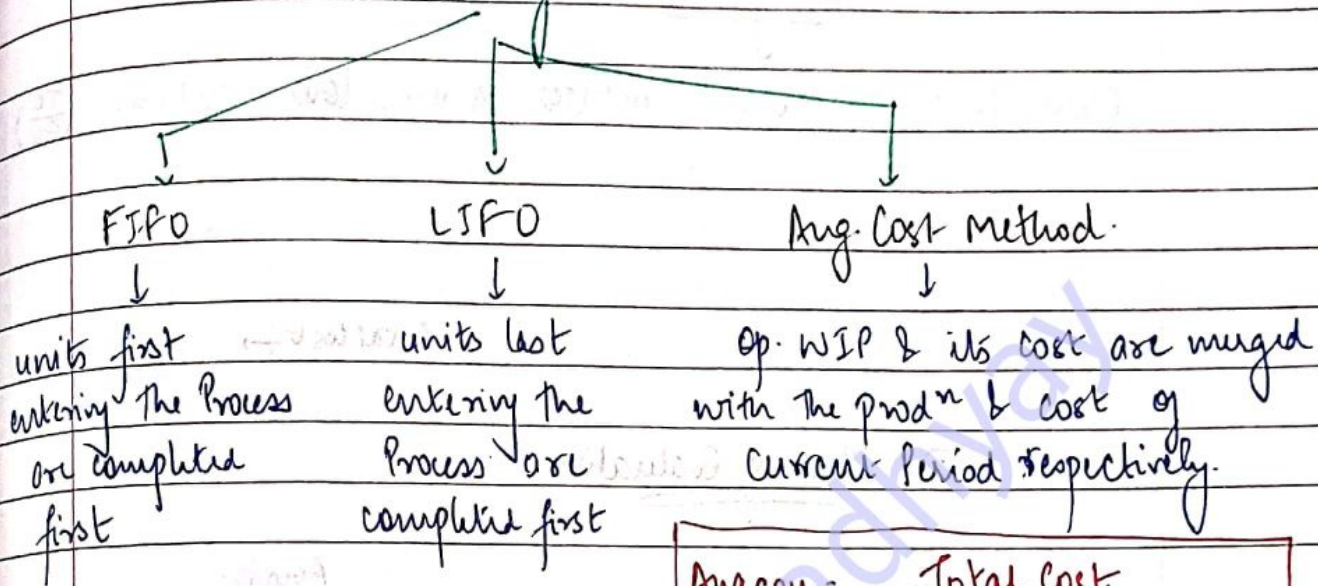 FIFO
LIFO
Avg. Cost Method.
units first
entering the Process
are completed
first
units last
entering the
Process are
completed first
Op. WIP & its cost are merged
with the prodn & cost of
Current Period respectively.
Total Cost
adhyay